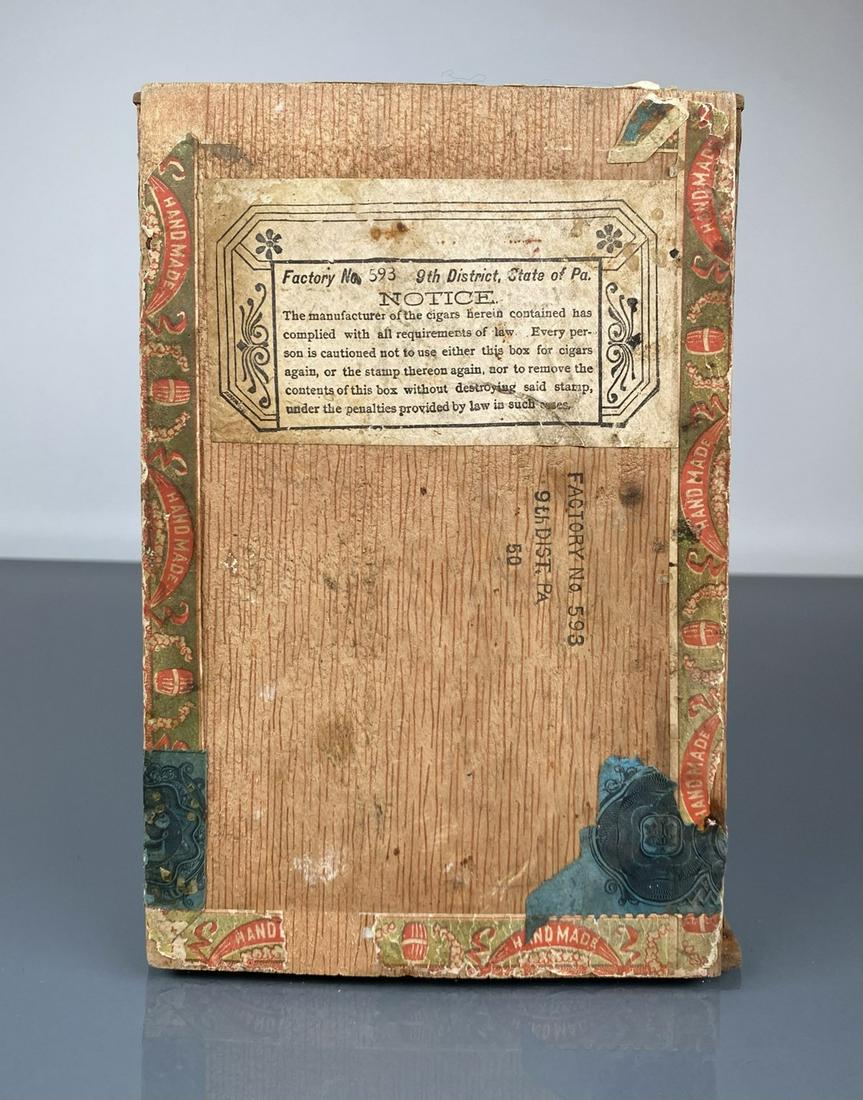 Factory No. 593 9th District, State of Pa.
NOTICE.
The manufacturer of the cigars herein contained has
complied with all requirements of law. Every per-
son is cautioned not to use either this box for cigars
again, or the stamp thereon again, nor to remove the
contents of this box without destroying said stamp,
under the penalties provided by law in such cases.
FACTORY No. 593
9th DIST. PA
50
HAND MADE
HAND MADE
HAND MADE
HAND MADE
HAND MADE
HAND
HAND MADE